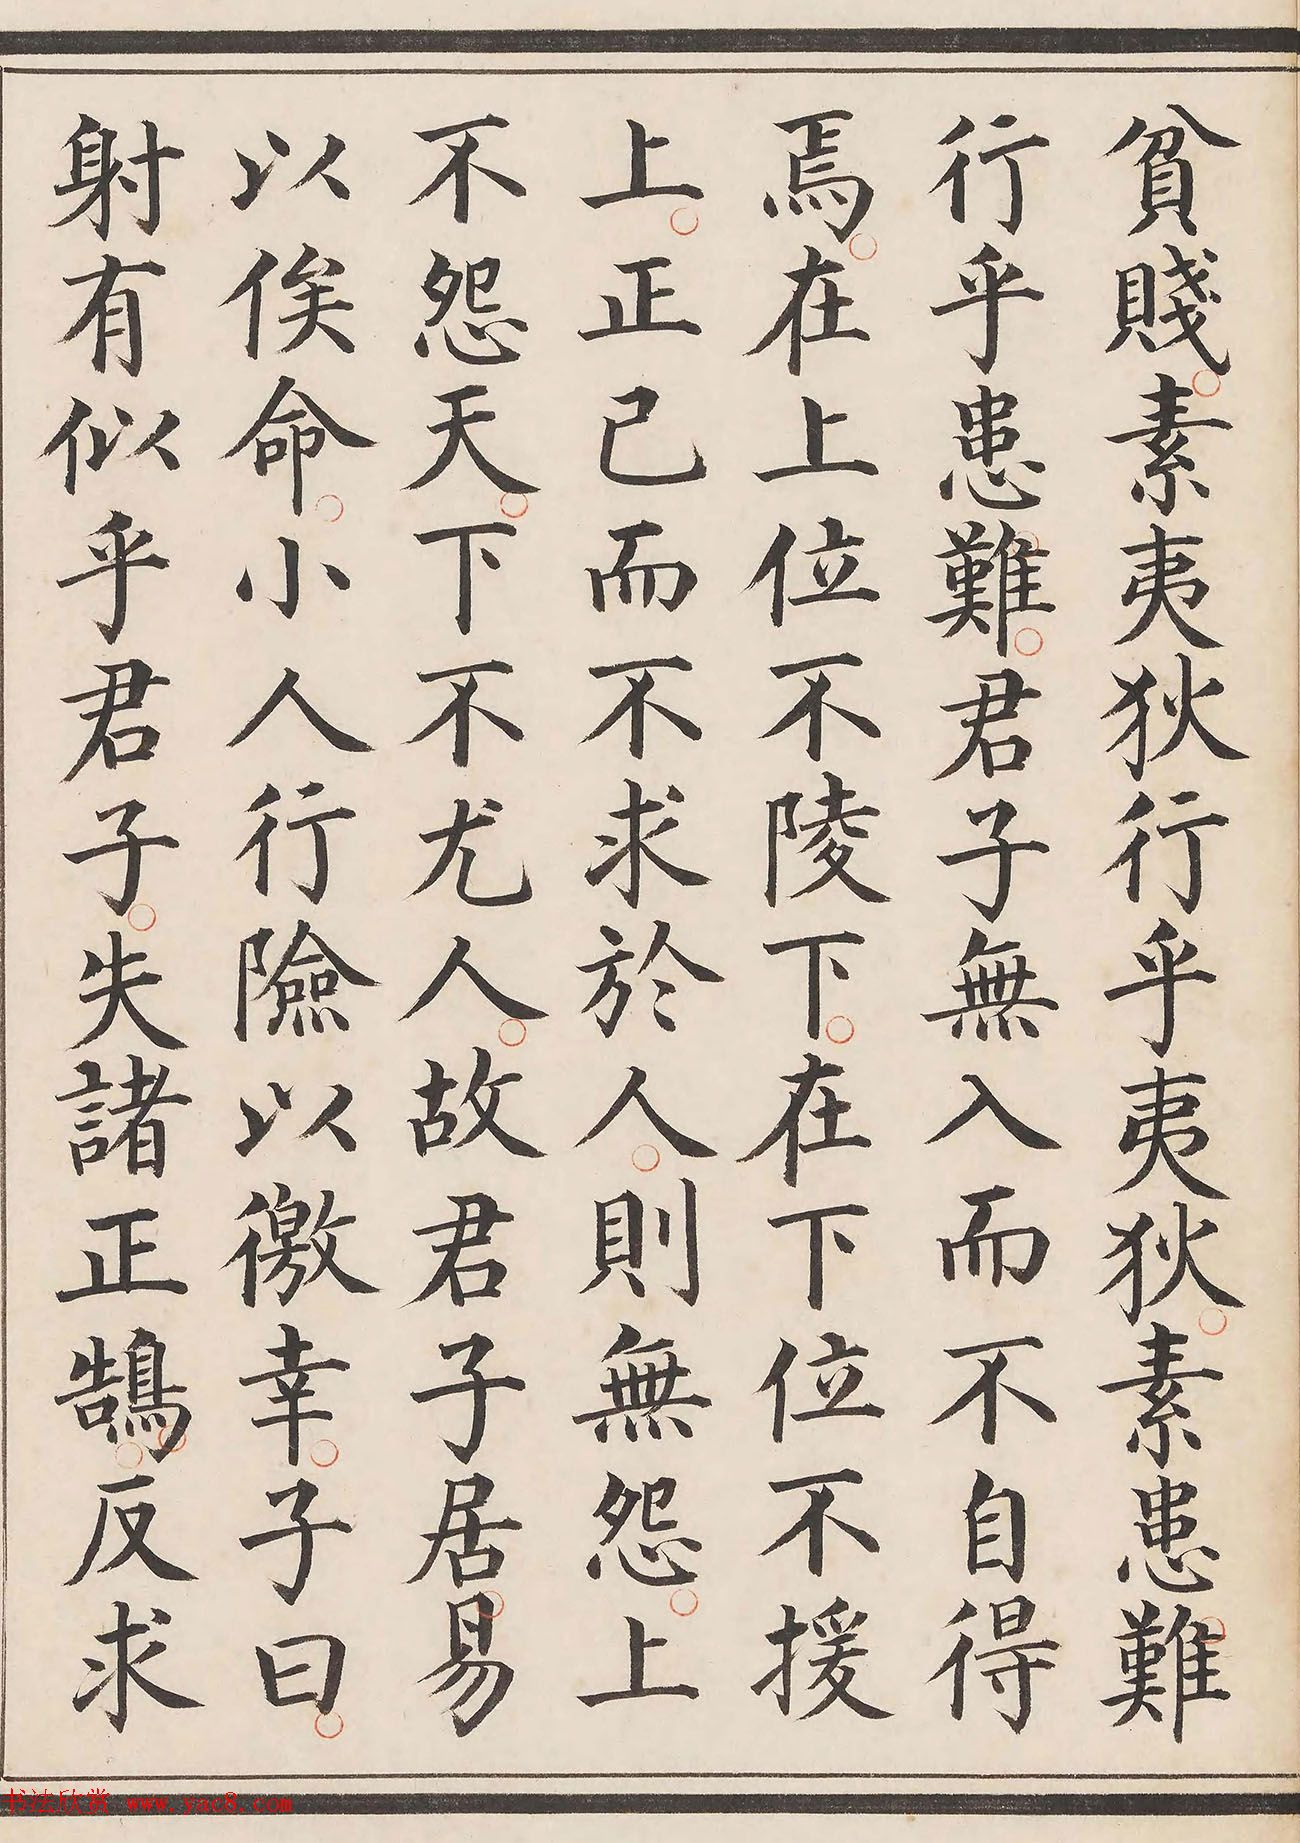 貧賤。素夷狄行乎夷狄。素患難
行乎患難。君子無入而不自得
焉。在上位不陵下。在下位不援
上。正己而不求於人。則無怨。上
不怨天。下不尤人。故君子居易
以俟命。小人行險以徼幸。子曰。
射有似乎君子。失諸正鵠。反求
书法欣赏 www.yac8.com